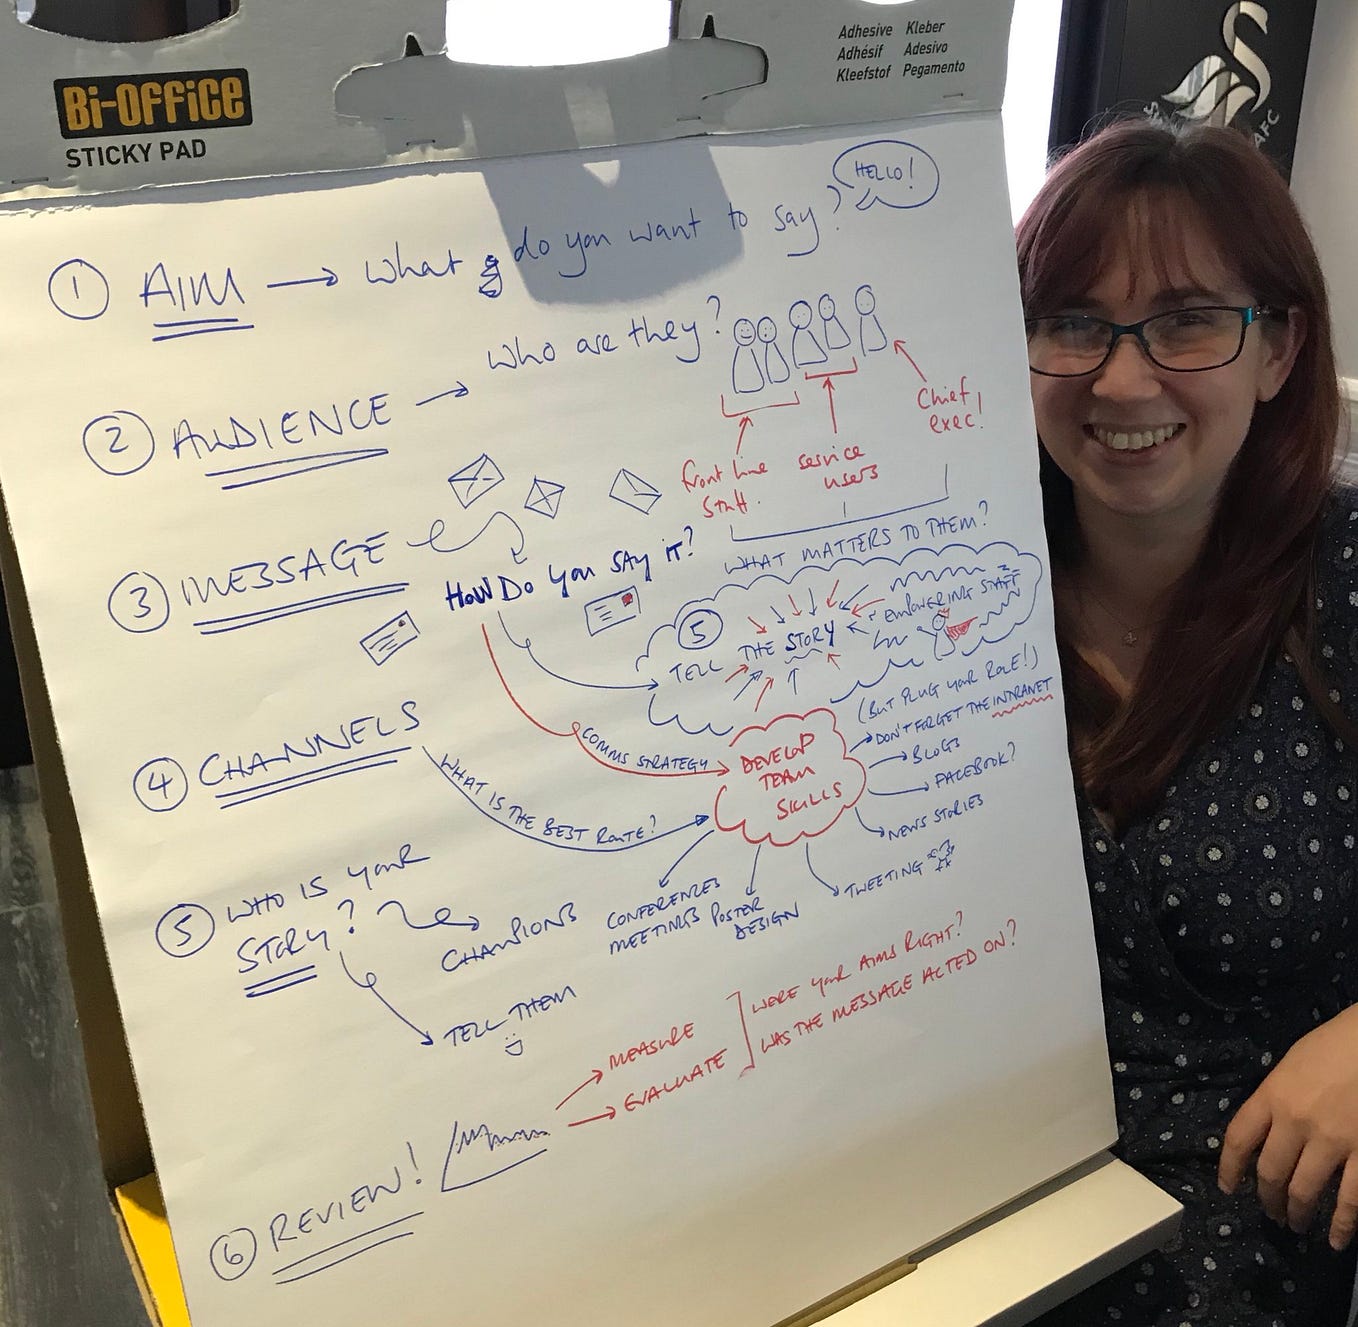 Bi-OFFiCE
STICKY PAD
Adhesive Kleber
Adhésif Adesivo
Kleefstof Pegamento
AFC
HELLO!
① AIM → What do you want to say?
② AUDIENCE → Who are they?
Chief exec!
front line staff.
service users
③ MESSAGE
HOW DO you SAY iT?
WHAT MATTERS TO THEM?
⑤ TELL THE STORY
EMPOWERING STAFF
(BUT PLUG YOUR ROLE!)
DON'T FORGET THE INTRANET
BLOGS
FACEBOOK?
NEWS STORIES
TWEETING
COMMS STRATEGY
DEVELOP
TEAM
SKILLS
④ CHANNELS
WHAT IS THE BEST ROUTE?
⑤ WHO IS YOUR
STORY?
CHAMPIONS
CONFERENCES
MEETINGS
POSTER
DESIGN
TELL THEM
MEASURE
EVALUATE
WERE YOUR AIMS RIGHT?
WAS THE MESSAGE ACTED ON?
⑥ REVIEW!